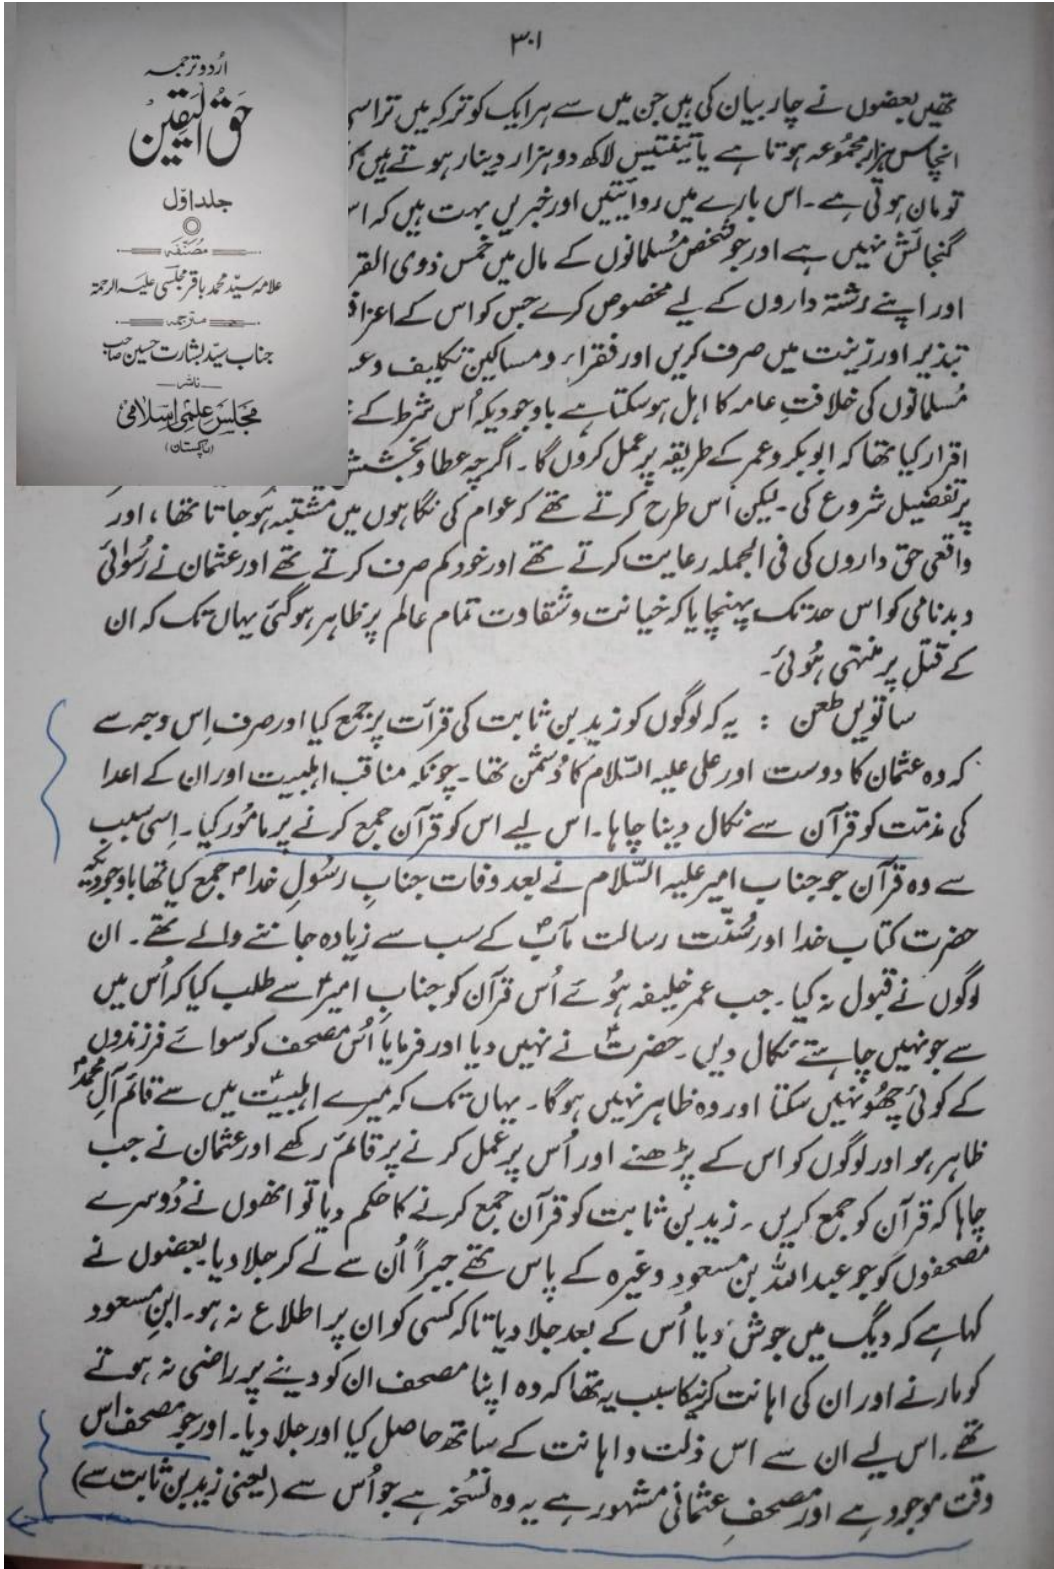 ۳۰۱
اُردو ترجمہ
حَقُّ الیَقِین
جلد اوّل
مُصَنِّفَہ
علامہ سیّد محمد باقر مجلسی علیہ الرحمۃ
مترجمہ
جناب سیّد بشارت حسین صاحب
ناشر
مجلس علمی اسلامی
(پاکستان)
تھیں بعضوں نے چار بیان کی ہیں جن میں سے ہر ایک کو ترکہ میں تراسی
انچاس ہزار مجموعہ ہوتا ہے یا تینتیس لاکھ دو ہزار دینار ہوتے ہیں
تومان ہوتی ہے۔ اس بارے میں روایتیں اور خبریں بہت ہیں کہ اس
گنجائش نہیں ہے اور جو شخص مُسلمانوں کے مال میں خمس ذوی القر
اور اپنے رشتہ داروں کے لیے مخصوص کرے جس کو اس کے اعزا
تبذیر اور زینت میں صرف کریں اور فقراء و مساکین تکلیف و
مُسلمانوں کی خلافتِ عامہ کا اہل ہو سکتا ہے باوجودیکہ اُس شرط کے
اقرار کیا تھا کہ ابوبکر و عمر کے طریقہ پر عمل کروں گا۔ اگرچہ عطا و بخشش
پر تفضیل شروع کی۔ لیکن اُس طرح کرتے تھے کہ عوام کی نگاہوں میں مشتبہ ہو جاتا تھا، اور
واقعی حق داروں کی فی الجملہ رعایت کرتے تھے اور خود کم صرف کرتے تھے اور عثمان نے رُسوائی
و بدنامی کو اس حد تک پہنچایا کہ خیانت و شقاوت تمام عالم پر ظاہر ہو گئی یہاں تک کہ ان
کے قتل پر منتہی ہُوئی۔
ساتویں طعن : یہ کہ لوگوں کو زید بن ثابت کی قرأت پر جمع کیا اور صرف اِس وجہ سے
کہ وہ عثمان کا دوست اور علی علیہ السّلام کا دُشمن تھا۔ چونکہ مناقب اہلبیت اور ان کے اعدا
کی مذمّت کو قرآن سے نکال دینا چاہا۔ اس لیے اس کو قرآن جمع کرنے پر مامُور کیا۔ اِسی سبب
سے وہ قرآن جو جناب امیر علیہ السّلام نے بعد وفات جنابِ رسُولِ خدا ؐ جمع کیا تھا باوجودیکہ
حضرت کتاب خدا اور سُنّت رسالت مآبؐ کے سب سے زیادہ جاننے والے تھے۔ ان
لوگوں نے قبول نہ کیا۔ جب عمر خلیفہ ہُوئے اُس قرآن کو جنابِ امیرؑ سے طلب کیا کہ اُس میں
سے جو نہیں چاہتے نکال دیں۔ حضرتؑ نے نہیں دیا اور فرمایا اُس مصحف کو سوائے فرزندوں
کے کوئی چھُو نہیں سکتا اور وہ ظاہر نہیں ہوگا۔ یہاں تک کہ میرے اہلبیتؑ میں سے قائم آلِ محمدؐ
ظاہر ہو اور لوگوں کو اس کے پڑھنے اور اُس پر عمل کرنے پر قائم رکھے اور عثمان نے جب
چاہا کہ قرآن کو جمع کریں۔ زید بن ثابت کو قرآن جمع کرنے کا حکم دیا تو انھوں نے دُوسرے
مصحفوں کو جو عبداللہ بن مسعود وغیرہ کے پاس تھے جبراً اُن سے لے کر جلا دیا۔ بعضوں نے
کہا ہے کہ دیگ میں جوش دیا اُس کے بعد جلا دیا تاکہ کسی کو ان پر اطلاع نہ ہو۔ ابنِ مسعود
کو مارنے اور ان کی اہانت کرنیکا سبب یہ تھا کہ وہ اپنا مصحف ان کو دینے پر راضی نہ ہوتے
تھے۔ اس لیے ان سے اس ذلت و اہانت کے ساتھ حاصل کیا اور جلا دیا۔ اور جو مصحف اس
وقت موجود ہے اور مصحفِ عثمانی مشہور ہے یہ وہ نسخہ ہے جو اُس سے (یعنی زید بن ثابت سے)